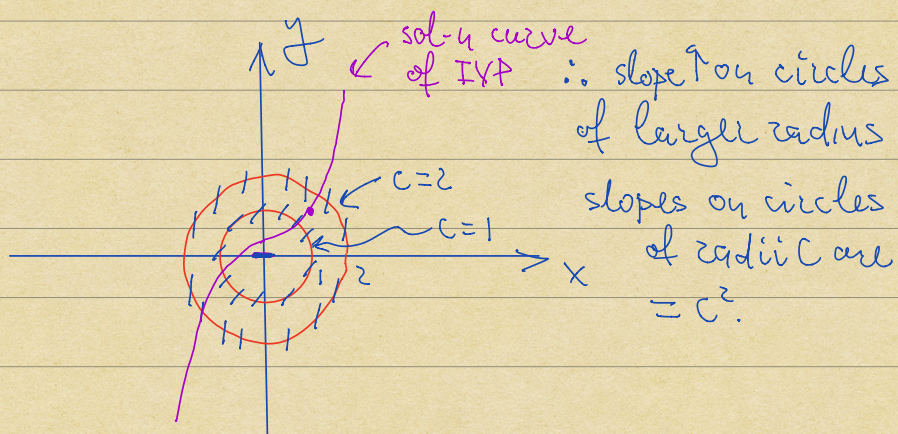 y
sol-n curve
of IVP
∴ slope↑ on circles
of larger radius
c=2
slopes on circles
c=1
of radii C are
1 2 x
= c².